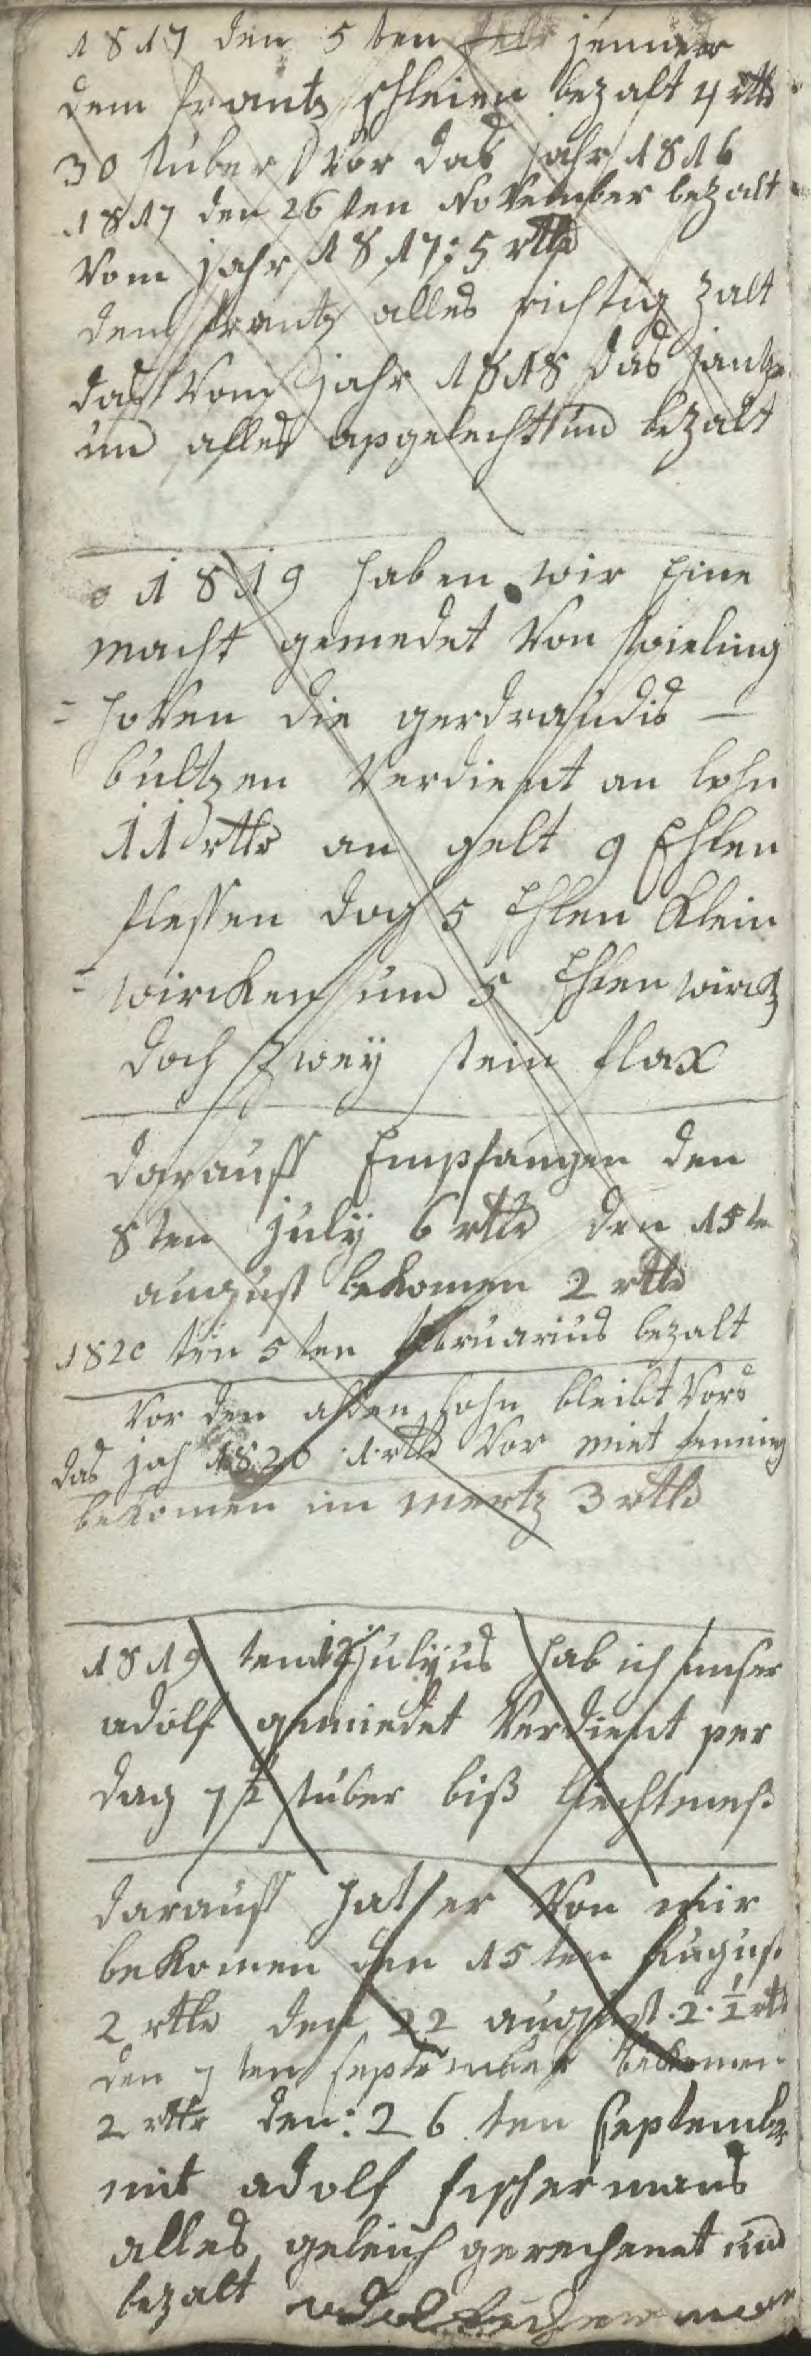 1817 den 5ten jenner
dem frantz schleien bezalt 4 rtlr
30 stuber vor das jahr 1816
1817 den 26ten November bezalt
vom jahr 1817: 5 rtlr
dem frantz alles richtig zalt
das vom jahr 1818 das jantze
un alles apgelecht und bezalt
1819 haben wir Eine
macht gemedet von
hoven die gerdraudis
bultzen verdient an lohn
11 rtlr an gelt 9 Ehlen
flessen doch 5 Ehlen klein
wircken und 5 Ehlen
doch zwey stein flax
darauff Empfangen den
8ten july 6 rtlr den 15te
august bekomen 2 rtlr
1820 ten 5ten februarius bezalt
vor den alden lohn bleibt vors
das jah 1820 1 rtlr vor miet
bekomen im mertz 3 rtlr
1819 ten 12 julyus hab ich unser
adolf gemiedet verdient per
dag 7½ stuber biß liechtmeß
darauff hat er von mir
bekomen den 15ten august
2 rtlr den 22 august 2½ rtlr
den 7ten september bekomen
2 rtlr den: 26ten September
mit adolf fischermans
alles geleich gerechenet und
bezalt adolf